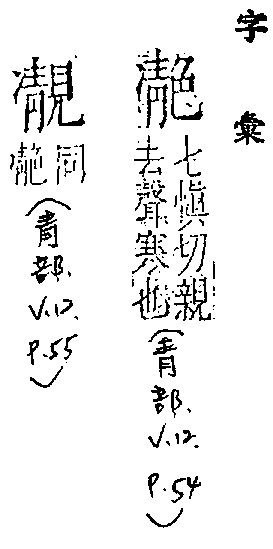 字彙
七慎切親
去聲寒也
(青部.
V.12.
P.54)
同
(青部.
V.12.
P.55)